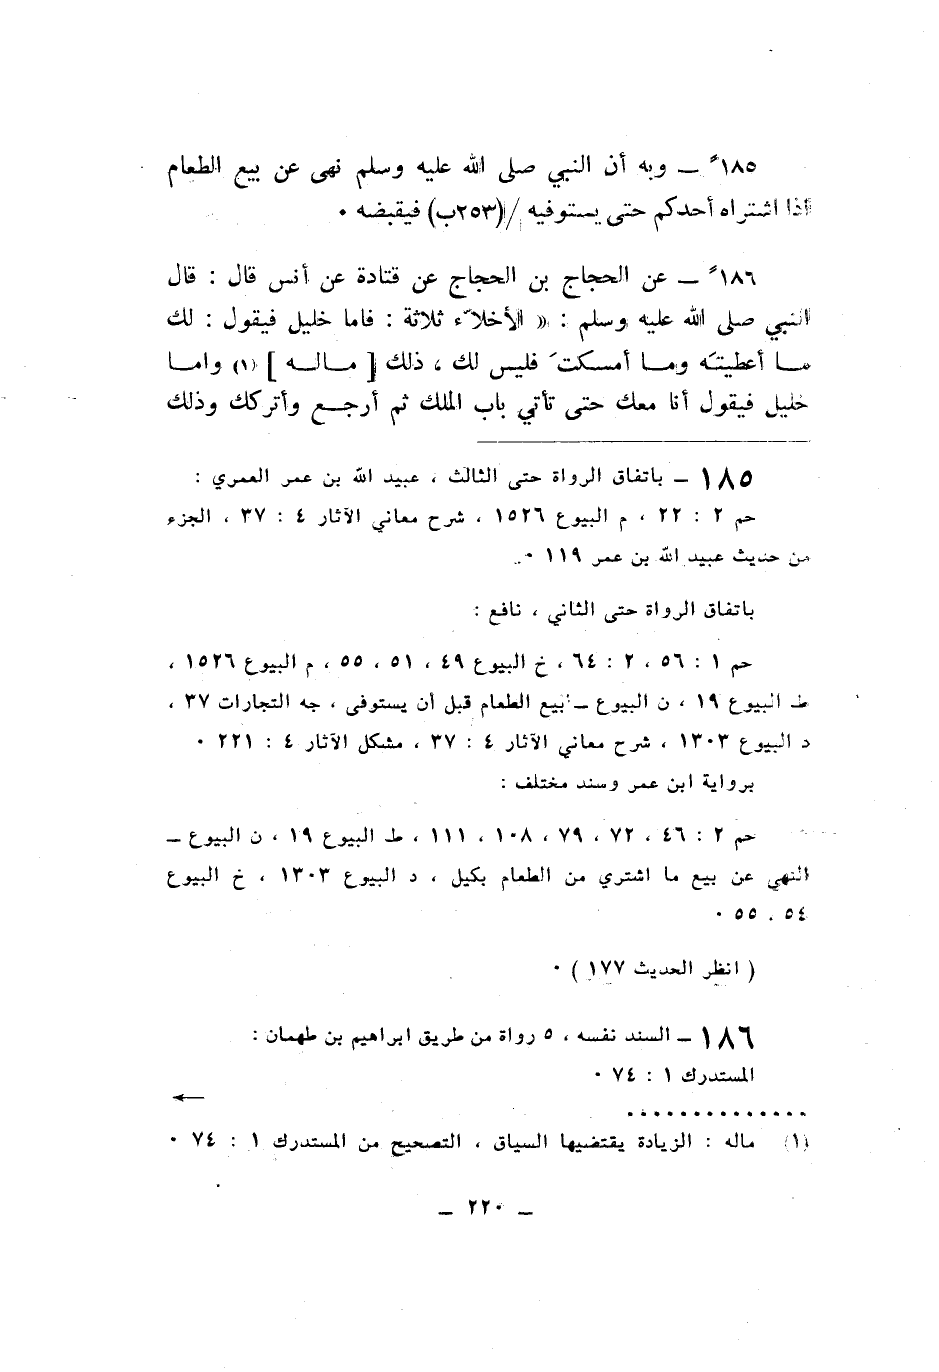 ١٨٥ ـ وبه أن النبي صلى الله عليه وسلم نهى عن بيع الطعام
إذا اشتراه أحدكم حتى يستوفيه /(٢٥٣ب) فيقبضه ٠
١٨٦ ـ عن الحجاج بن الحجاج عن قتادة عن أنس قال : قال
النبي صلى الله عليه وسلم : « الأخلاّء ثلاثة : فاما خليل فيقول : لك
ما أعطيته وما أمسكتَ فليس لك ، ذلك [ ماله ] (١) واما
خليل فيقول أنا معك حتى تأتي باب الملك ثم أرجع وأتركك وذلك
١٨٥ ـ باتفاق الرواة حتى الثالث ، عبيد الله بن عمر العمري :
حم ٢ : ٢٢ ، م البيوع ١٥٢٦ ، شرح معاني الآثار ٤ : ٣٧ ، الجزء
من حديث عبيد الله بن عمر ١١٩ ٠
باتفاق الرواة حتى الثاني ، نافع :
حم ١ : ٥٦ ، ٢ : ٦٤ ، خ البيوع ٤٩ ، ٥١ ، ٥٥ ، م البيوع ١٥٢٦ ،
ط البيوع ١٩ ، ن البيوع ـ بيع الطعام قبل أن يستوفى ، جه التجارات ٣٧ ،
د البيوع ١٣٠٣ ، شرح معاني الآثار ٤ : ٣٧ ، مشكل الآثار ٤ : ٢٢١ ٠
برواية ابن عمر وسند مختلف :
حم ٢ : ٤٦ ، ٧٢ ، ٧٩ ، ١٠٨ ، ١١١ ، ط البيوع ١٩ ، ن البيوع ـ
النهي عن بيع ما اشتري من الطعام بكيل ، د البيوع ١٣٠٣ ، خ البيوع
٥٤ ، ٥٥ ٠
( انظر الحديث ١٧٧ ) ٠
١٨٦ ـ السند نفسه ، ٥ رواة من طريق ابراهيم بن طهمان :
المستدرك ١ : ٧٤ ٠
←
..............
(١) ماله : الزيادة يقتضيها السياق ، التصحيح من المستدرك ١ : ٧٤ ٠
ـ ٢٢٠ ـ